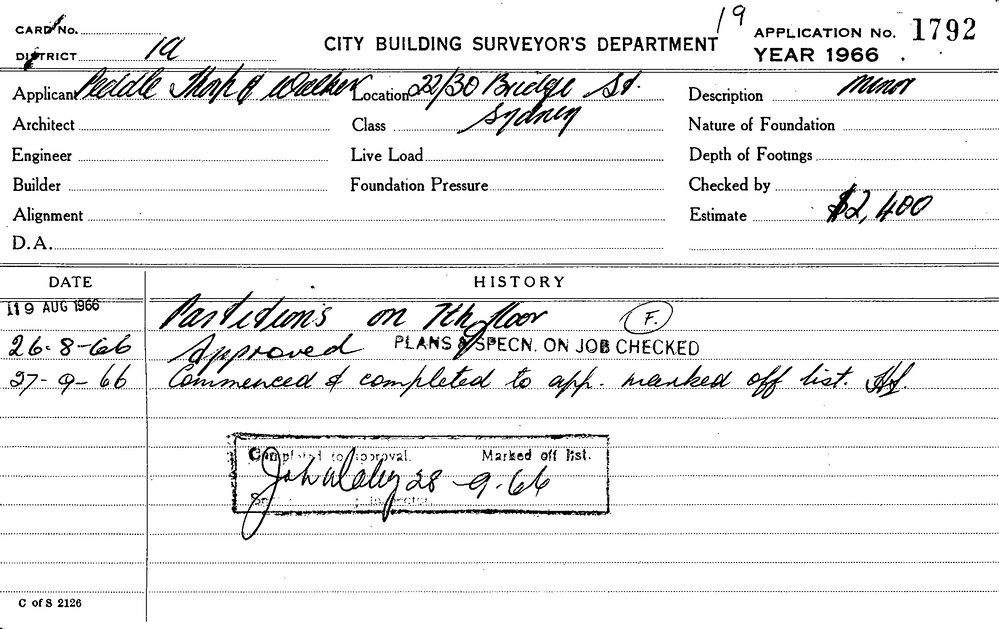 19
CARD No.
CITY BUILDING SURVEYOR'S DEPARTMENT
APPLICATION No. 1792
DISTRICT 19
YEAR 1966
Applicant Peddle Thorp & Walker Location 22/30 Bridge St. Description Minor
Sydney
Architect Class Nature of Foundation
Engineer Live Load Depth of Footings
Builder Foundation Pressure Checked by
Alignment Estimate $2,400
D.A.
DATE HISTORY
19 AUG 1966 Partitions on 7th floor F.
26-8-66 Approved PLANS & SPECN. ON JOB CHECKED
27-9-66 Commenced & completed to app. marked off list.
Completed to approval. Marked off list.
28-9-66
C of S 2126